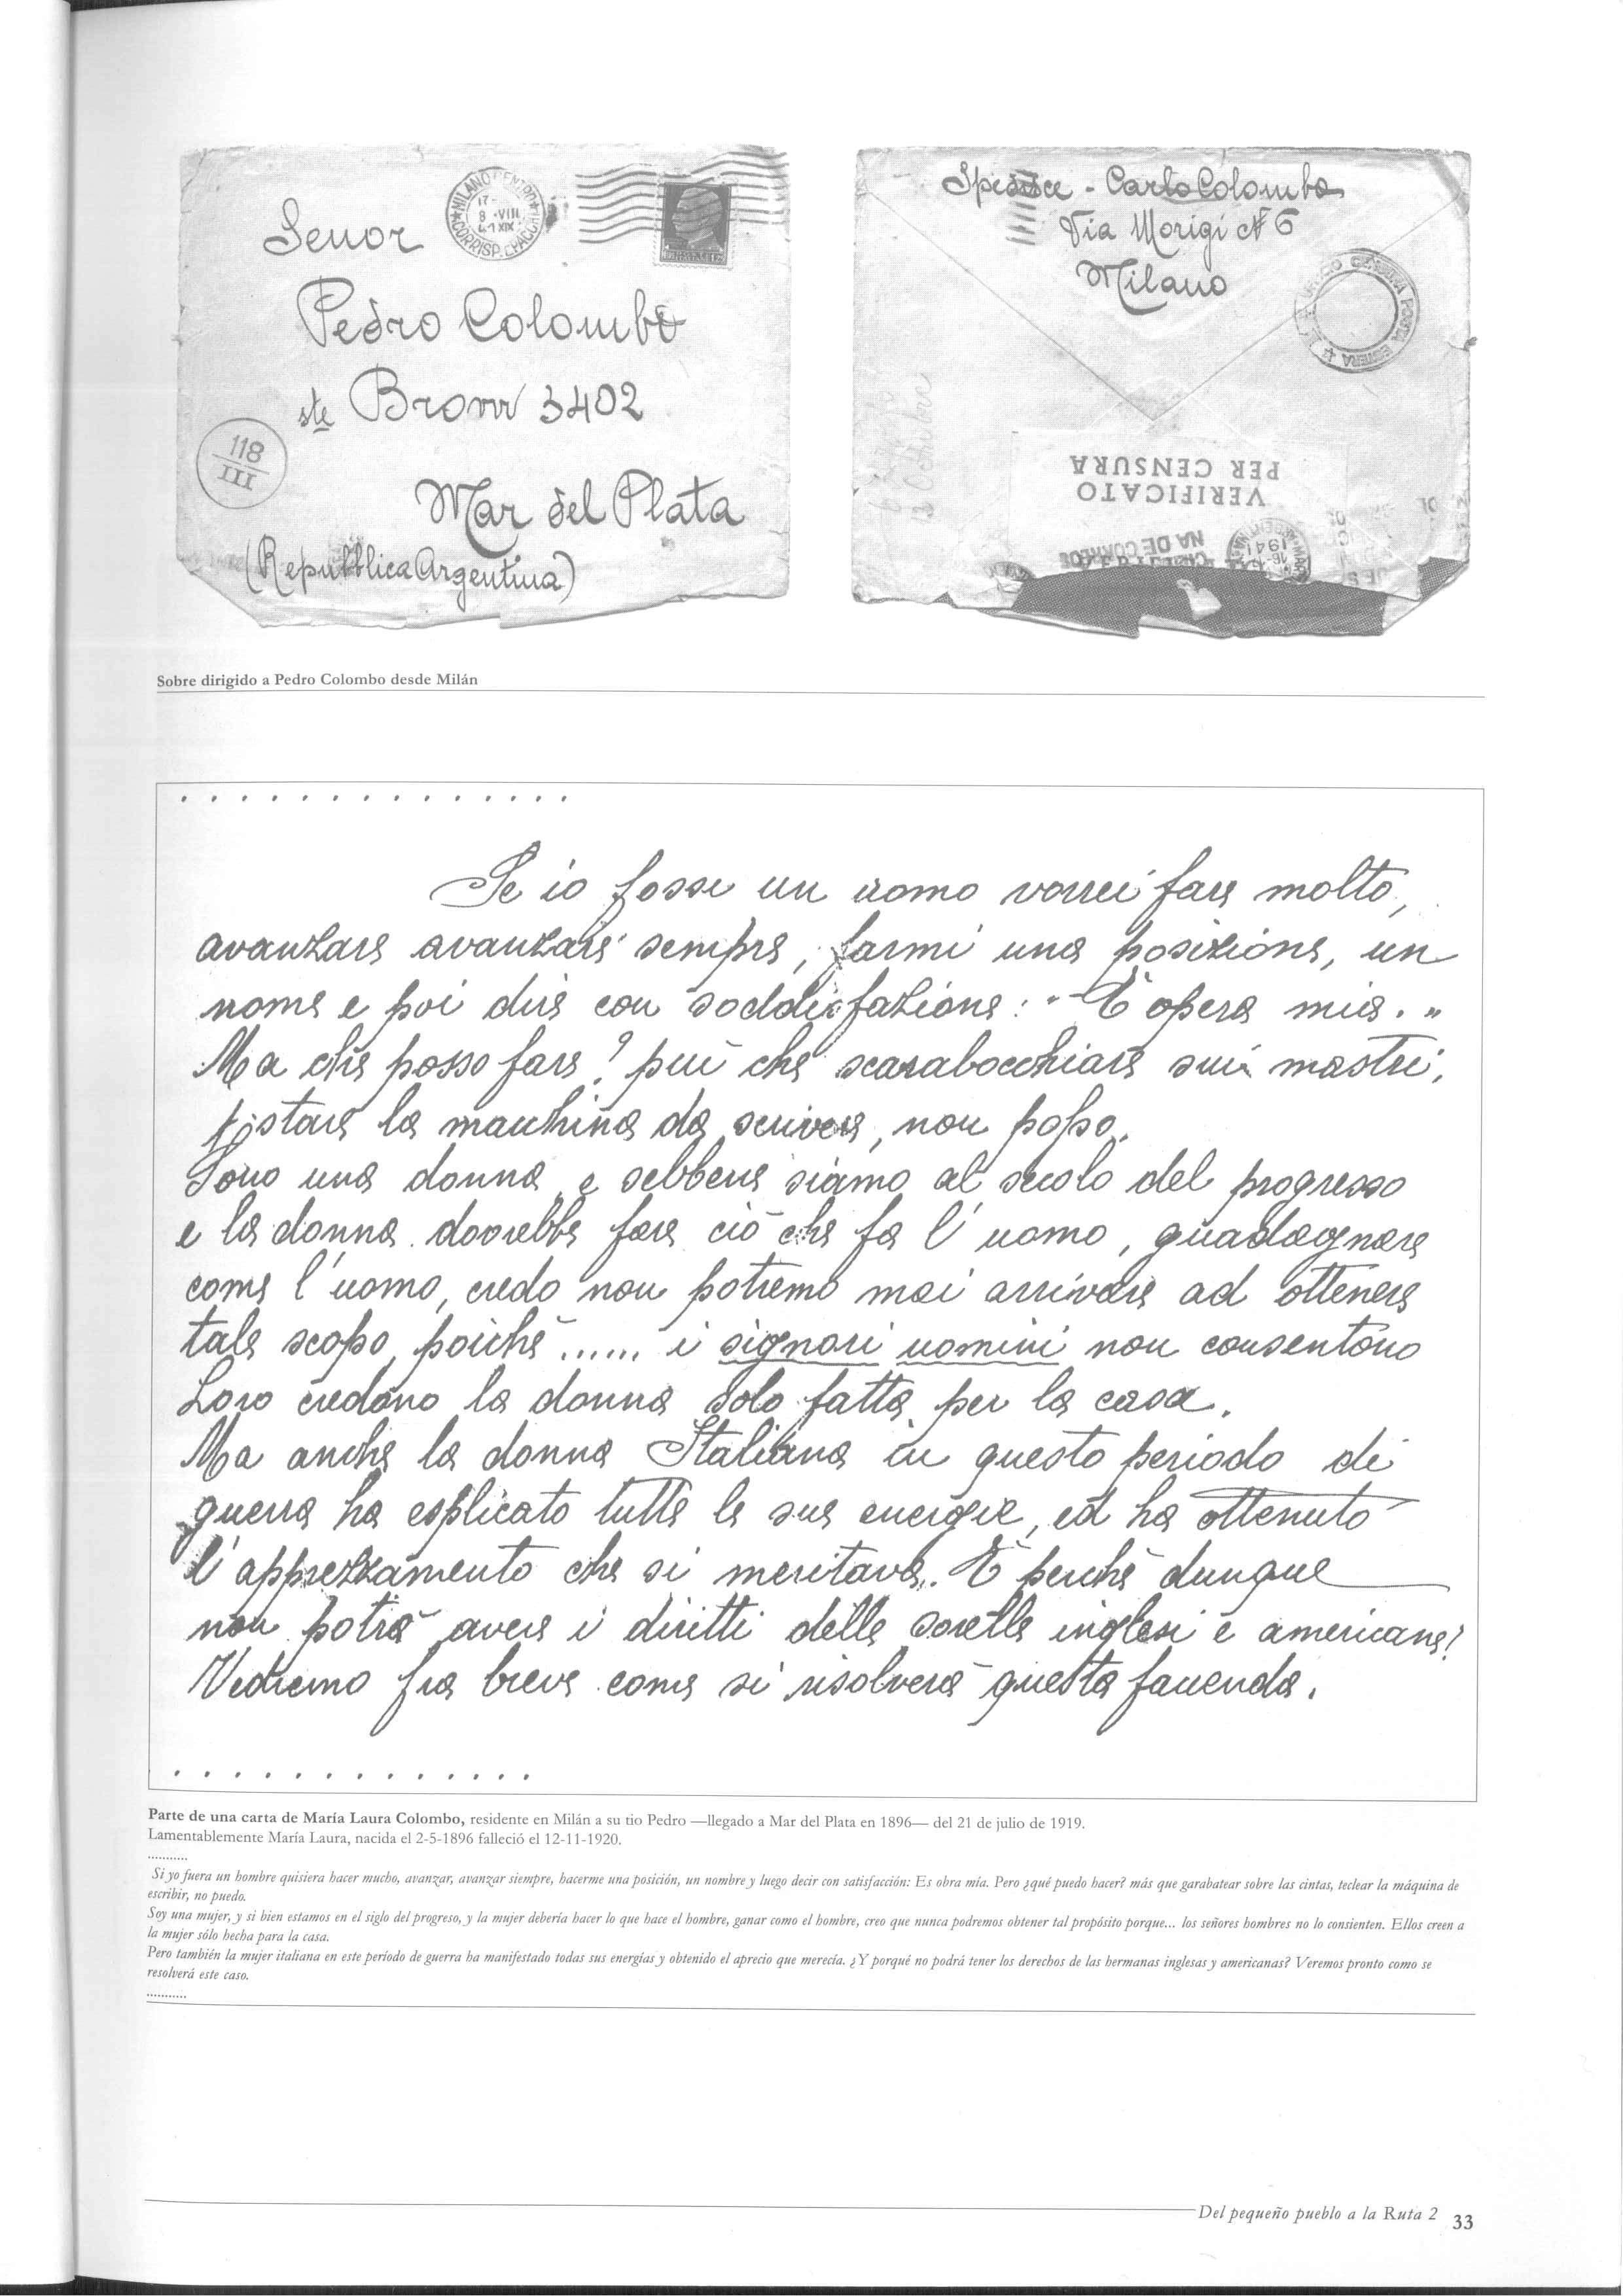 Senor
MILANO CENTRO
17-
8 · VIII
41 XIX
CORRISP. E PACCHI
Pedro Colombo
ste Bronn 3402
118
III
Mar del Plata
(Repubblica Argentina)
Spedisce - Carlo Colombo
Via Morigi N 6
Milano
POSTA ESTERA
VERIFICATO
PER CENSURA
NA DE CORREOS
1941
Sobre dirigido a Pedro Colombo desde Milán
. . . . . . . . . . . . . .
Se io fossi un uomo vorrei fare molto,
avanzare avanzare sempre, farmi una posizione, un
nome e poi dire con soddisfazione: "È opera mia."
Ma che posso fare? più che scarabocchiare sui mastri,
pistare la macchina da scrivere, non posso.
Sono una donna, e sebbene siamo al secolo del progresso
e la donna dovrebbe fare ciò che fa l'uomo, guadagnare
come l'uomo, credo non potremo mai arrivare ad ottenere
tale scopo, poichè ...... i signori uomini non consentono
Loro credono la donna solo fatta per la casa.
Ma anche la donna Italiana in questo periodo di
guerra ha esplicato tutte le sue energie, ed ha ottenuto
l'apprezzamento che si meritava. E perchè dunque
non potrà avere i diritti delle sorelle inglesi e americane?
Vedremo fra breve come si risolverà questa faccenda.
. . . . . . . . . . . . .
Parte de una carta de María Laura Colombo, residente en Milán a su tio Pedro —llegado a Mar del Plata en 1896— del 21 de julio de 1919.
Lamentablemente María Laura, nacida el 2-5-1896 falleció el 12-11-1920.
...........
Si yo fuera un hombre quisiera hacer mucho, avanzar, avanzar siempre, hacerme una posición, un nombre y luego decir con satisfacción: Es obra mía. Pero ¿qué puedo hacer? más que garabatear sobre las cintas, teclear la máquina de
escribir, no puedo.
Soy una mujer, y si bien estamos en el siglo del progreso, y la mujer debería hacer lo que hace el hombre, ganar como el hombre, creo que nunca podremos obtener tal propósito porque... los señores hombres no lo consienten. Ellos creen a
la mujer sólo hecha para la casa.
Pero también la mujer italiana en este período de guerra ha manifestado todas sus energías y obtenido el aprecio que merecía. ¿Y porqué no podrá tener los derechos de las hermanas inglesas y americanas? Veremos pronto como se
resolverá este caso.
...........
Del pequeño pueblo a la Ruta 2 33